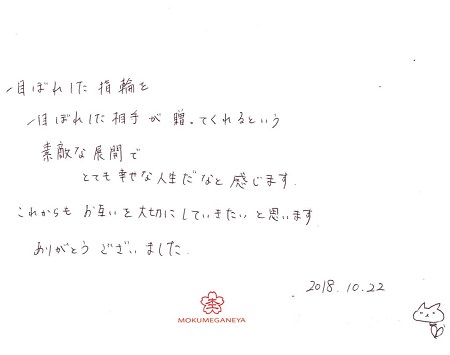 一目ぼれした指輪を
一目ぼれした相手が贈ってくれるという
素敵な展開で
とても幸せな人生だなと感じます.
これからもお互いを大切にしていきたいと思います
ありがとうございました.
2018.10.22
MOKUMEGANEYA